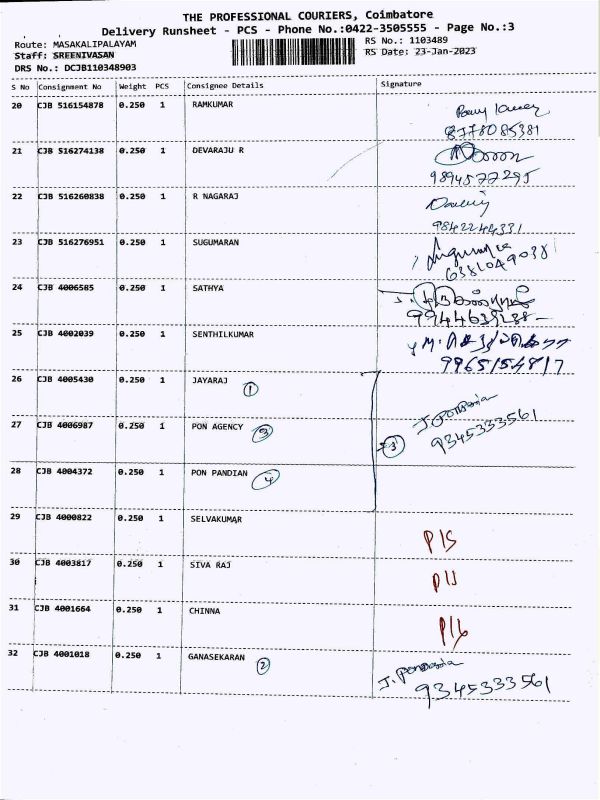 THE PROFESSIONAL COURIERS, Coimbatore
Delivery Runsheet - PCS - Phone No.:0422-3505555 - Page No.:3
Route: MASAKALIPALAYAM
RS No.: 1103489
Staff: SREENIVASAN
RS Date: 23-Jan-2023
DRS No.: DCJB110348903
S No Consignment No Weight PCS Consignee Details Signature
20 CJB 516154878 0.250 1 RAMKUMAR
8778085381
21 CJB 516274138 0.250 1 DEVARAJU R
9894577295
22 CJB 516260838 0.250 1 R NAGARAJ
9842244331
23 CJB 516276951 0.250 1 SUGUMARAN
6381049038
24 CJB 4006585 0.250 1 SATHYA
25 CJB 4002039 0.250 1 SENTHILKUMAR
9965154817
26 CJB 4005430 0.250 1 JAYARAJ 1
27 CJB 4006987 0.250 1 PON AGENCY 3
9345333561
28 CJB 4004372 0.250 1 PON PANDIAN 4
29 CJB 4000822 0.250 1 SELVAKUMAR
30 CJB 4003817 0.250 1 SIVA RAJ
31 CJB 4001664 0.250 1 CHINNA
32 CJB 4001018 0.250 1 GANASEKARAN 2
9345333561